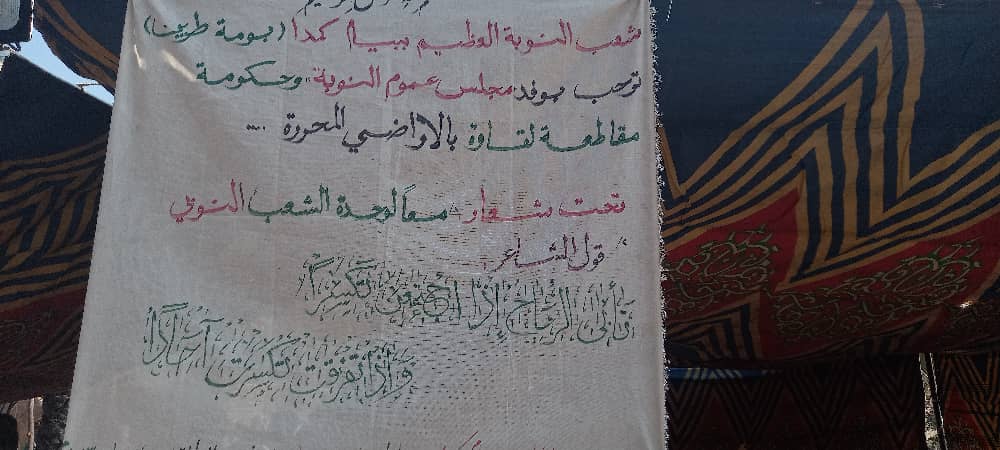 شعب النوبة العظيم ببيام كمدا (بومة طريننا)
توحب بوفد مجلس عموم النوبة وحكومة
مقاطعة لقاوة بالاراضي المحررة ....
تحت شعار معاً لوحدة الشعب النوبي
قول الشاعر
تأبى الرماح إذا اجتمعن تكسراً
وإذا تفرقت تكسرت آحاداً